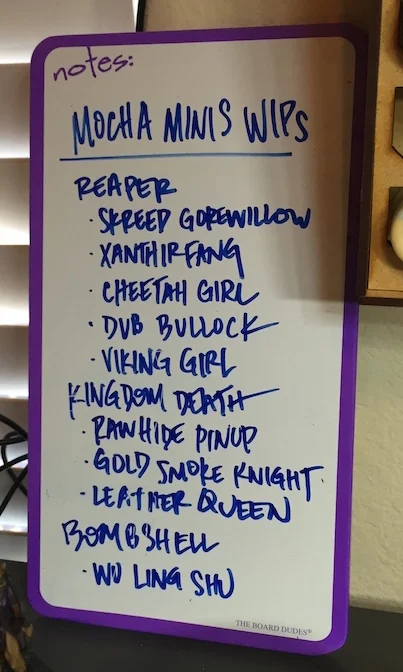 notes:
MOCHA MINIS WIPS
REAPER
· SKREED GOREWILLOW
· XANTHIRFANG
· CHEETAH GIRL
· DUB BULLOCK
· VIKING GIRL
KINGDOM DEATH
· RAWHIDE PINUP
· GOLD SMOKE KNIGHT
· LEATHER QUEEN
BOMBSHELL
· WU LING SHU
THE BOARD DUDES®